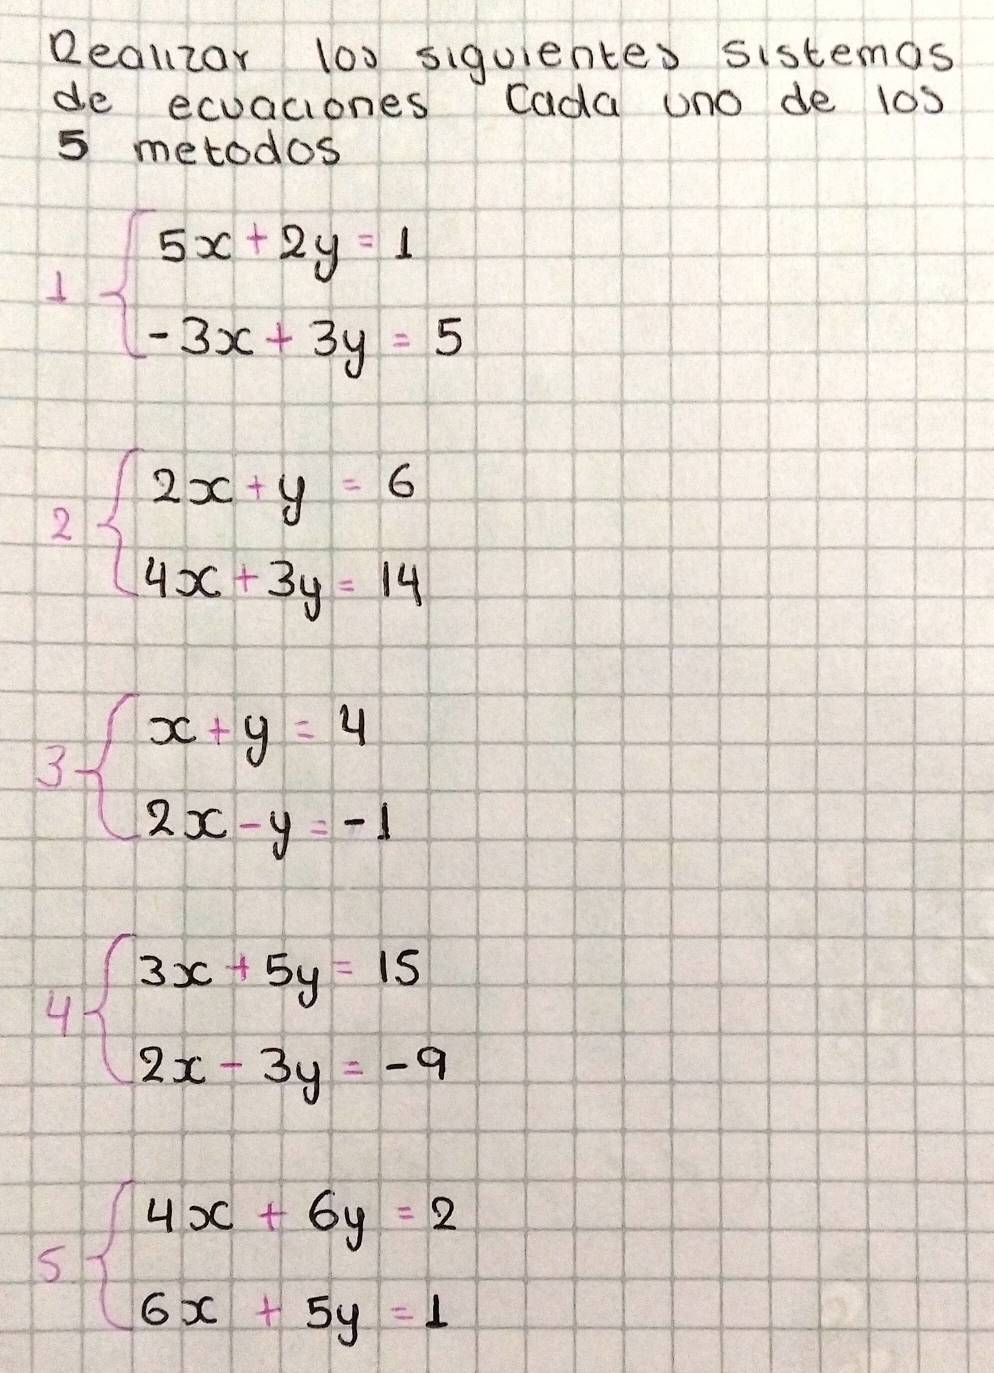 Realizar los siguientes sistemas
de ecuaciones Cada uno de los
5 metodos
1 { 5x + 2y = 1
-3x + 3y = 5
2 { 2x + y = 6
4x + 3y = 14
3 { x + y = 4
2x - y = -1
4 { 3x + 5y = 15
2x - 3y = -9
5 { 4x + 6y = 2
6x + 5y = 1